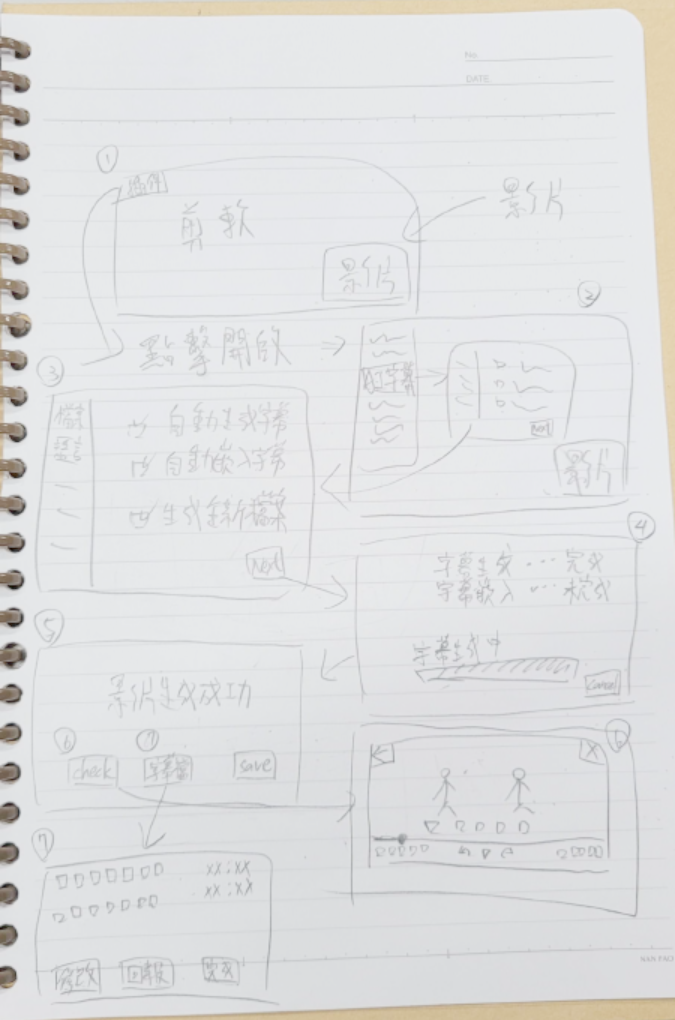 No.
DATE
①
插件
剪軟
影片
影片
點擊開啟
②
AI字幕
Next
影片
③
檔案
語言
自動生成字幕
自動嵌入字幕
生成全新檔案
Next
④
字幕生成 ... 完成
字幕嵌入 ... 未完成
字幕生成中
Cancel
⑤
影片生成成功
⑥ ⑦
check 字幕檔 save
⑥
X
⑦
xx:xx
xx:xx
修改 回報 完成